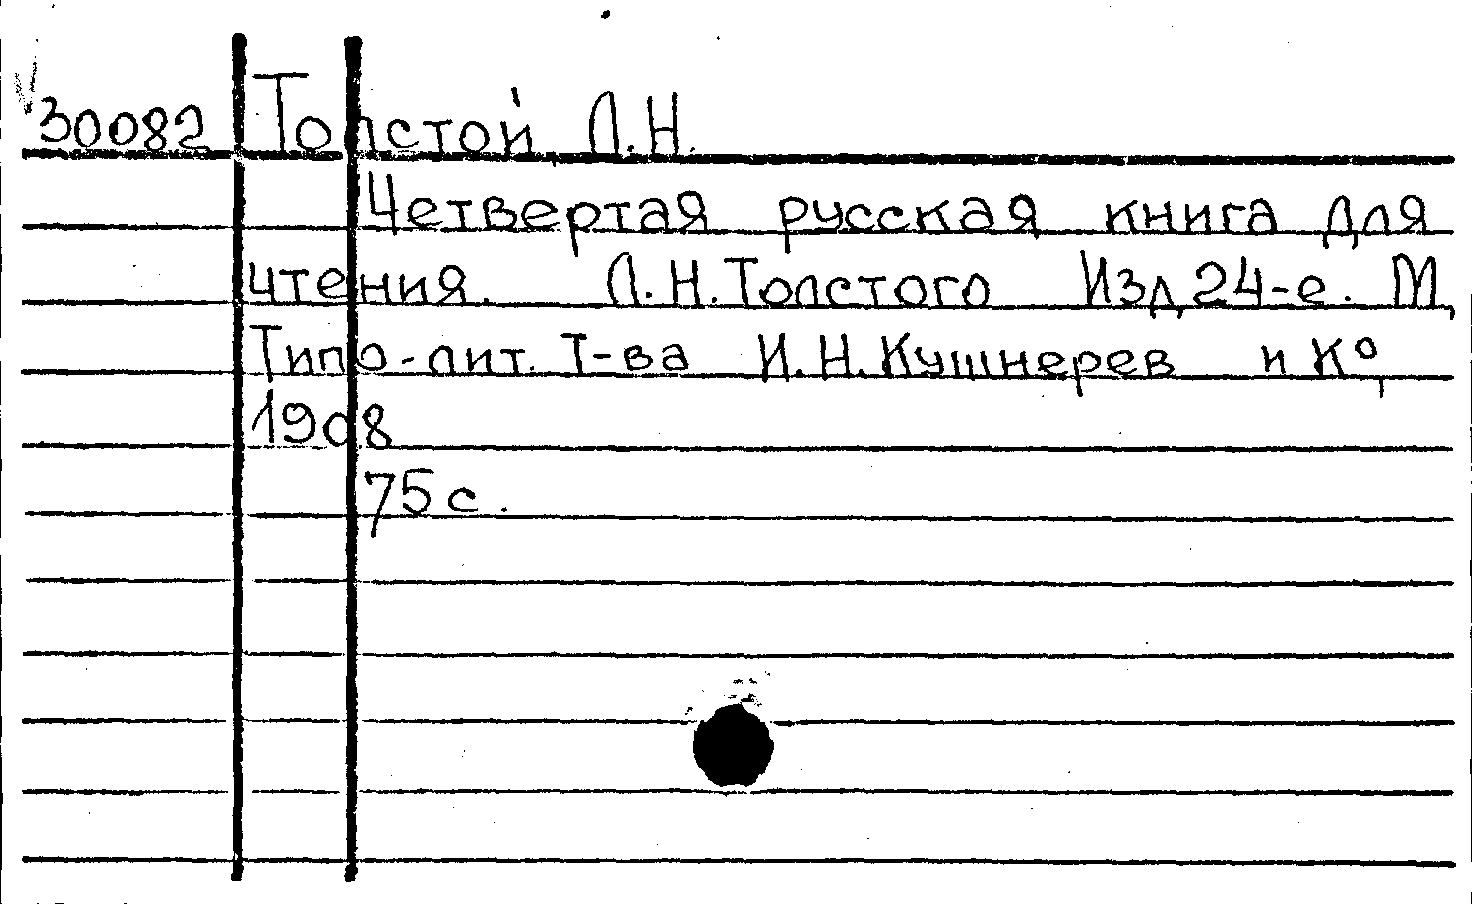 30082 Толстой Л.Н.
Четвертая русская книга для
чтения. Л.Н.Толстого Изд 24-е. М,
Типо-лит. Т-ва И.Н.Кушнерев и К°,
1908
75 с.